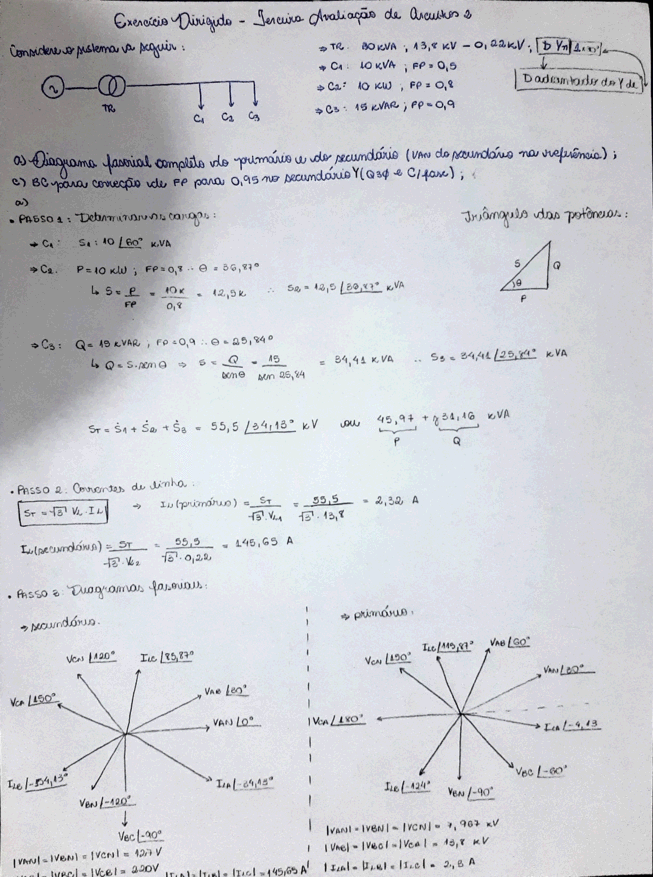 Exercício Dirigido - Terceira Avaliação de Circuitos 2
Considere o sistema a seguir:
⇒ TR: 30 KVA ; 13,8 KV - 0,22KV ; D Yn
⇒ C1: 10 KVA ; FP = 0,5
⇒ C2: 10 KW ; FP = 0,8
⇒ C3: 15 KVAR ; FP = 0,9
D adiantador do Y de
TR
C1 C2 C3
a) Diagrama fasorial completo do primário e do secundário (VAN do secundário na referência) ;
c) BC para correção de FP para 0,95 no secundário Y (Q3φ e C/fase) ;
a)
• PASSO 1 : Determinar as cargas :
Triângulo das potências :
⇒ C1: S1 : 10 /60° KVA
⇒ C2. P = 10 KW ; FP = 0,8 ∴ θ = 36,87°
↳ S = P/FP = 10K/0,8 = 12,5K ∴ S2 = 12,5 /36,87° KVA
S Q θ P
⇒ C3 : Q = 15 KVAR , FP = 0,9 ∴ θ = 25,84°
↳ Q = S·senθ ⇒ S = Q/senθ = 15/sen 25,84 = 34,41 KVA ∴ S3 = 34,41 /25,84° KVA
ST = Ṡ1 + Ṡ2 + Ṡ3 = 55,5 /34,13° KV ou 45,97 + j31,16 KVA
P Q
• PASSO 2 : Correntes de linha :
ST = √3 VL · IL ⇒ IL (primário) = ST/√3·VL1 = 55,5/√3·13,8 = 2,32 A
IL (secundário) = ST/√3·VL2 = 55,5/√3·0,22 = 145,65 A
• PASSO 3 : Diagramas fasoriais :
→ secundário.
VCN /120°
ILC /85,87°
VCA /150°
VAB /30°
VAN /0°
ILB /-154,13°
ILA /-34,13°
VBN /-120°
VBC /-90°
|VAN| = |VBN| = |VCN| = 127 V
220V
= 145,65 A
⇒ primário :
ILC /115,87°
VAB /60°
VCN /150°
VAN /30°
VCA /180°
ILA /-4,13
ILB /-124°
VBC /-60°
VBN /-90°
|VAN| = |VBN| = |VCN| = 7,967 KV
|VAB| = |VBC| = |VCA| = 13,8 KV
|ILA| = |ILB| = |ILC| = 2,3 A